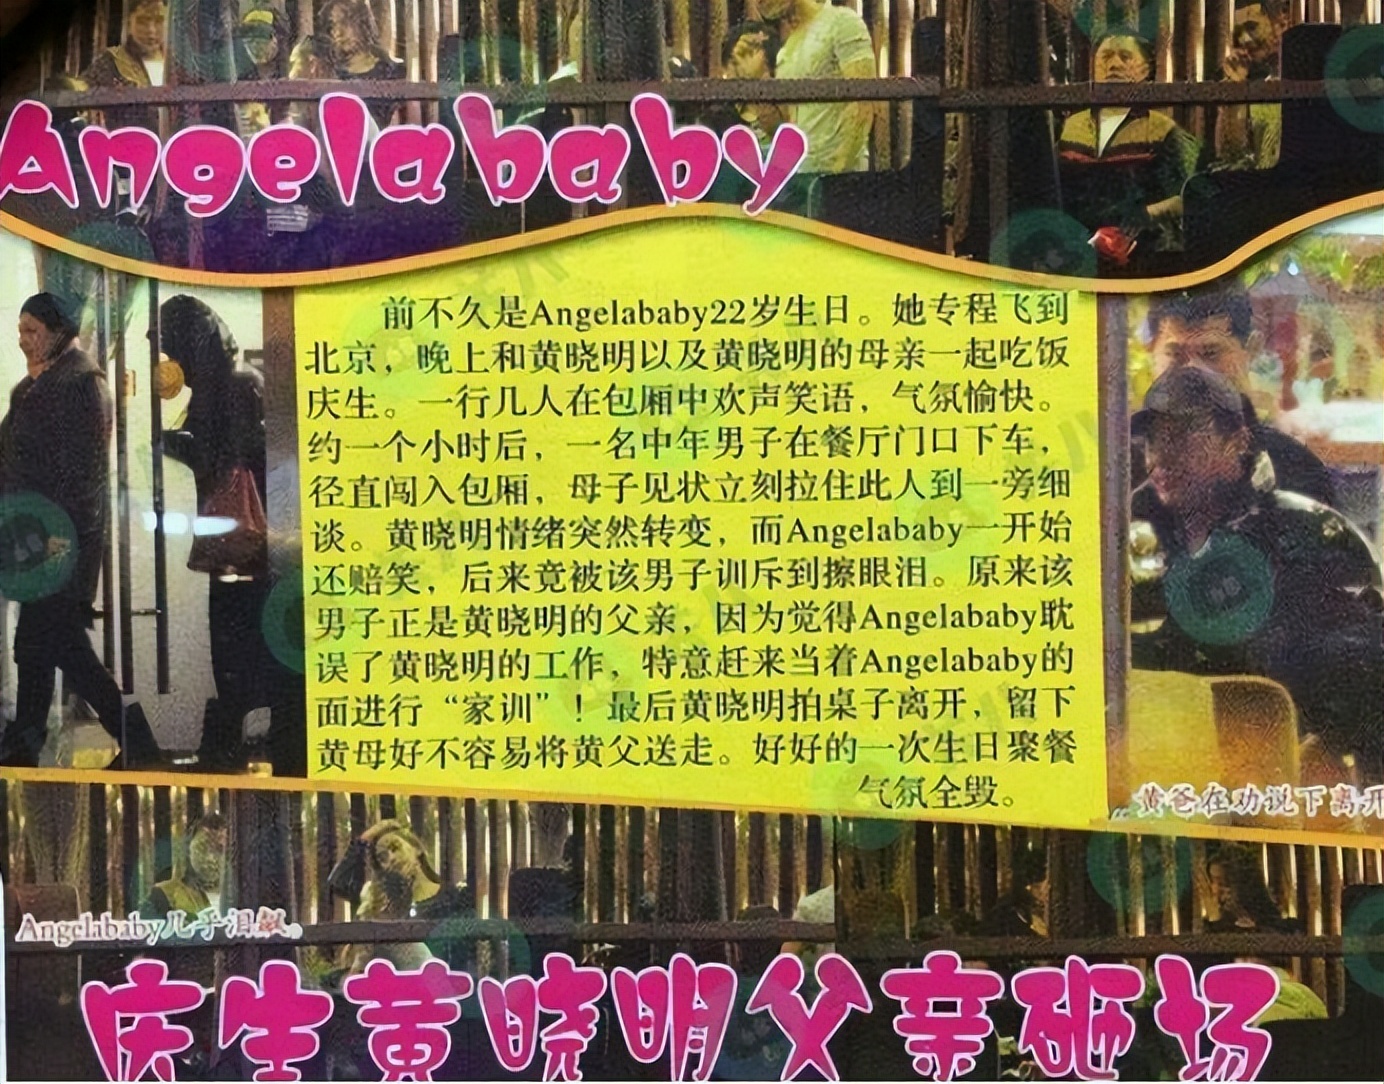 Angelababy
前不久是Angelababy22岁生日。她专程飞到
北京，晚上和黄晓明以及黄晓明的母亲一起吃饭
庆生。一行几人在包厢中欢声笑语，气氛愉快。
约一个小时后，一名中年男子在餐厅门口下车，
径直闯入包厢，母子见状立刻拉住此人到一旁细
谈。黄晓明情绪突然转变，而Angelababy一开始
还赔笑，后来竟被该男子训斥到擦眼泪。原来该
男子正是黄晓明的父亲，因为觉得Angelababy耽
误了黄晓明的工作，特意赶来当着Angelababy的
面进行“家训”！最后黄晓明拍桌子离开，留下
黄母好不容易将黄父送走。好好的一次生日聚餐
气氛全毁。
黄爸在劝说下离开
Angelababy几乎泪飙。
庆生黄晓明父亲砸场